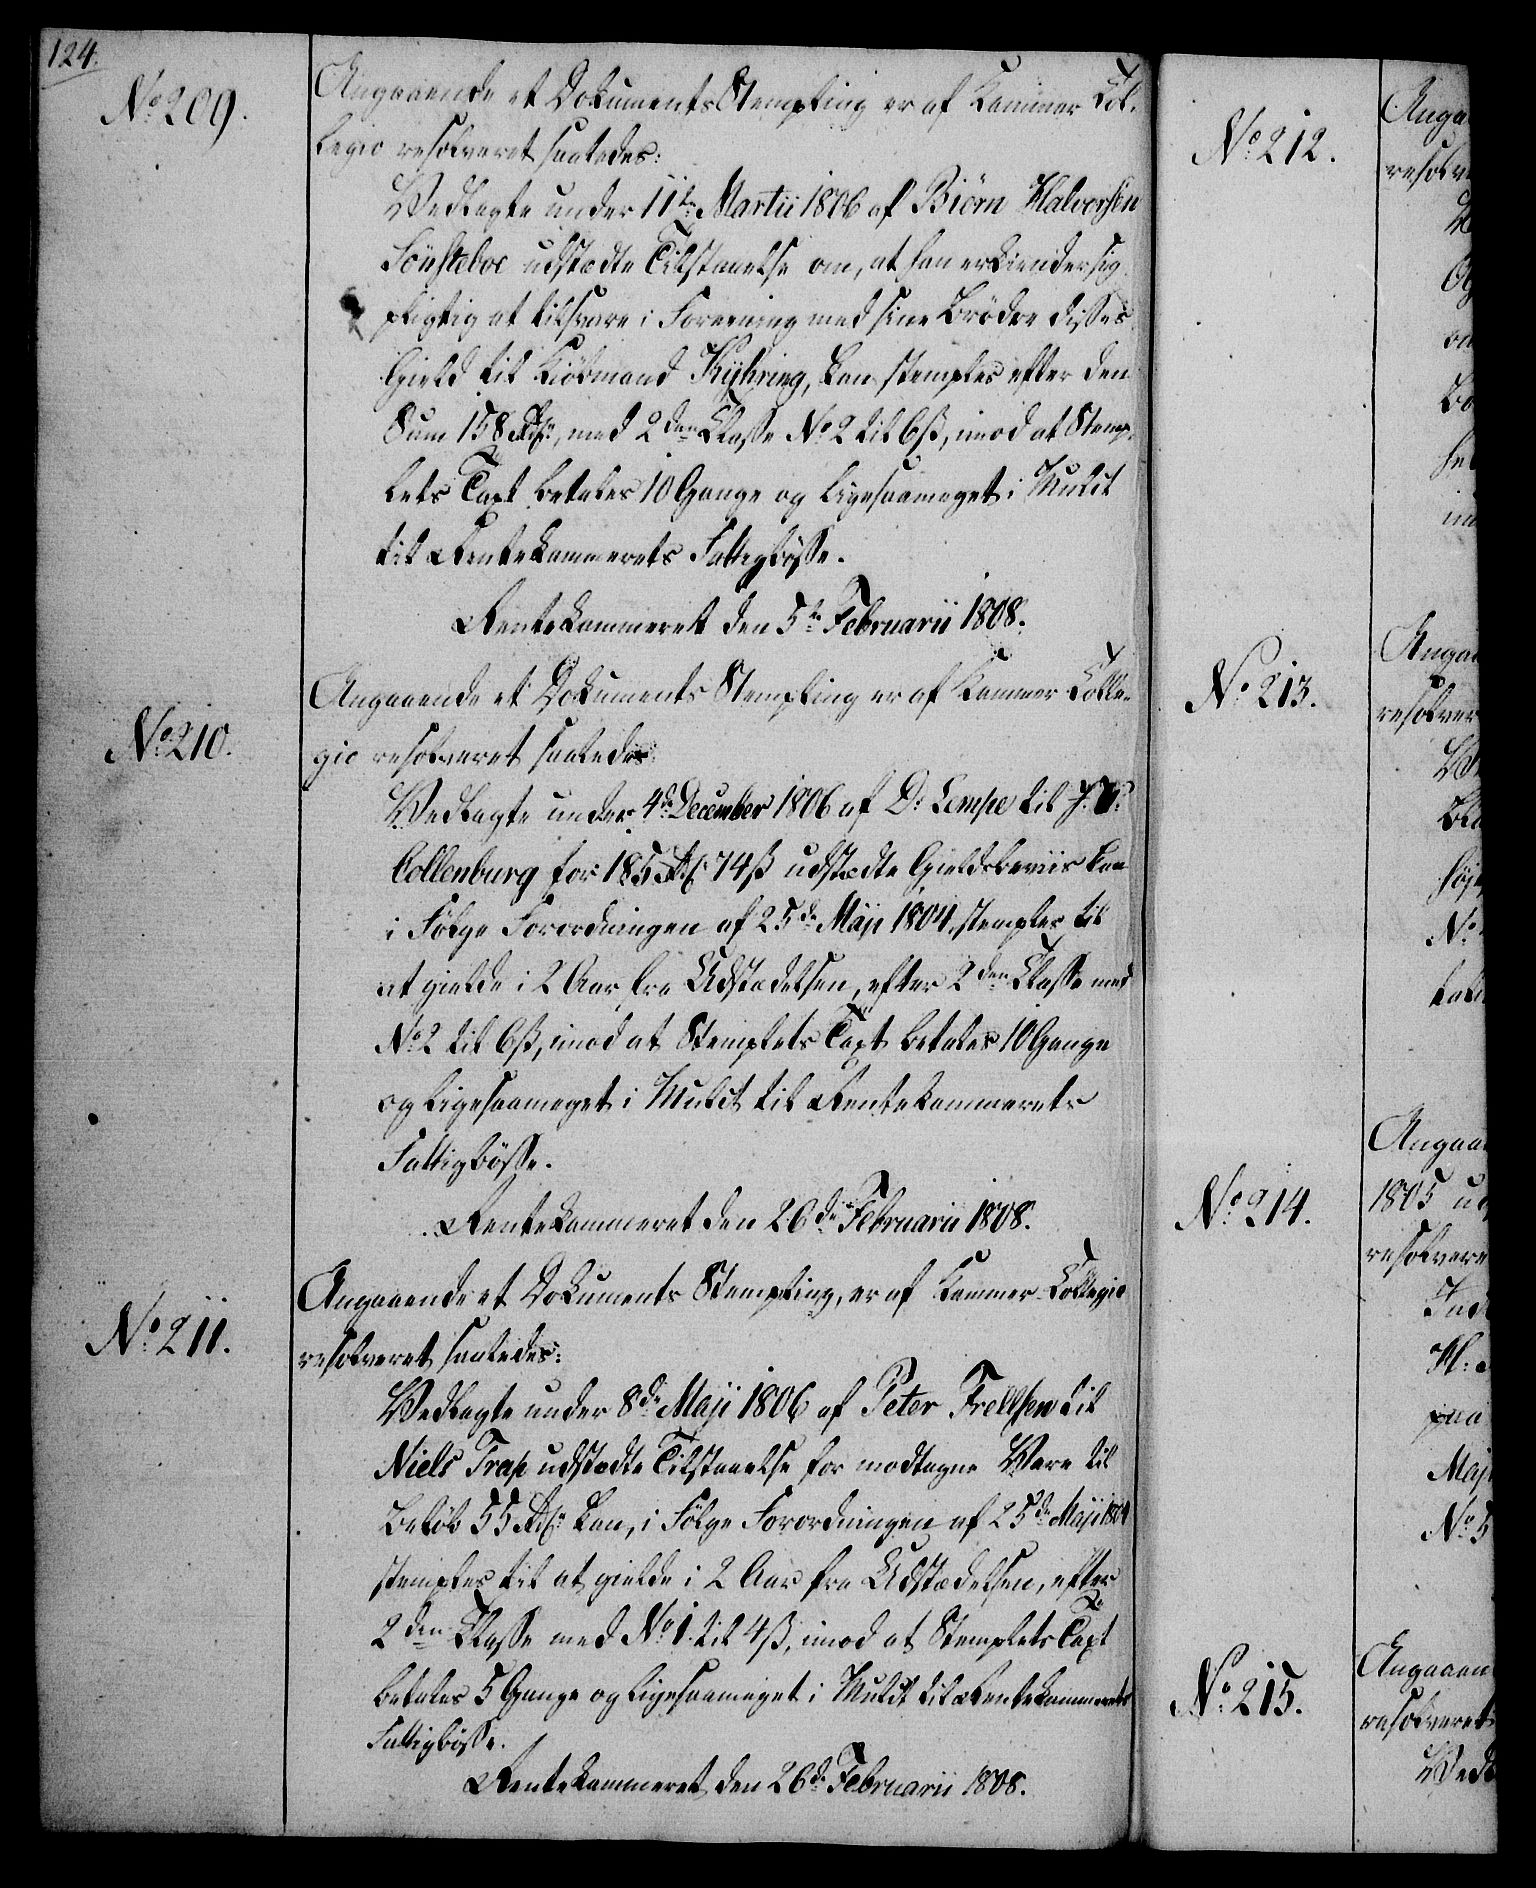 124.
No 209.
Angaaende et Dokuments Stempling er af Kammer Col-
legio resolveret saaledes:
Vedlagte under 11te Martii 1806 af Biörn Halvorsen
udstædte Tilstaaelse om, at han erkiender sig
pligtig at tilsvare i Foreening med sine Brödre disses
Gield til Kiöbmand Kyhring, kan stemples efter den
Sum 158 Rdr, med 2den Classe No 2 til 6ß, imod at Stemp-
lets Taxt betales 10 Gange og ligesaameget i Mulct
til Rentekammerets Fattigbösse.
Rentekammeret den 5te Februarii 1808.
No 210.
Angaaende et Dokuments Stempling er af Kammer Colle-
gio resolveret saaledes:
Vedlagte under 4de December 1806 af D: Lempe til
Collenburg for 185 Rdr 74ß udstædte Gieldsbeviis kan
i Fölge Forordningen af 25de Maji 1804, stemples til
at gielde i 2 Aar fra Udstædelsen, efter 2den Classe med
No 2 til 6ß, imod at Stemplets Taxt betales 10 Gange
og ligesaameget i Mulct til Rentekammerets
Fattigbösse.
Rentekammeret den 26de Februarii 1808.
No 211.
Angaaende et Dokuments Stempling, er af Kammer-Collegio
resolveret saaledes:
Vedlagte under 8de Maji 1806 af Peter Frellsen til
Niels Trap udstædte Tilstaaelse for modtagne Vare til
Belöb 55 Rdr kan, i Fölge Forordningen af 25de Maji 1804
stemples til at gielde i 2 Aar fra Udstædelsen, efter
2den Classe med No 1. til 4ß, imod at Stemplets Taxt
betales 5 Gange og ligesaameget i Mulct til Rentekammerets
Fattigbösse.
Rentekammeret den 26de Februarii 1808.
No 212.
Anga
resolve
No 213.
Angaa
resolver
No 214.
Angaa
1805
resolvere
paa
Maji
No 5
No 215.
Angaaen
resolveret
Vedl